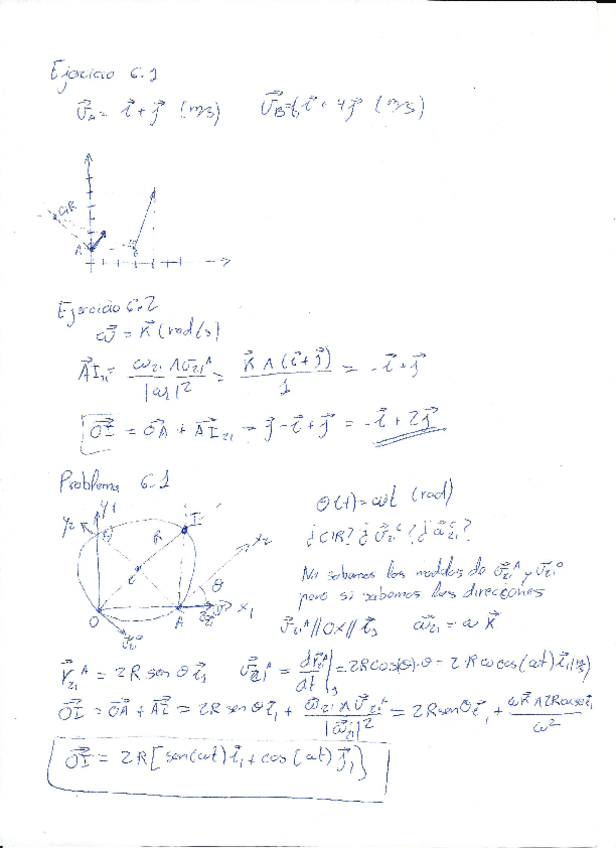 Ejercicio 6.1
v⃗A = i⃗ + j⃗ (m/s) v⃗B = i⃗ + 4j⃗ (m/s)
CIR
A
Ejercicio 6.2
ω⃗ = k⃗ (rad/s)
A⃗I₂₁ = ω⃗₂₁ ∧ v⃗₂₁ᴬ / |ω⃗|² = k⃗ ∧ (i⃗ + j⃗) / 1 = -i⃗ + j⃗
O⃗I = O⃗A + A⃗I₂₁ = j⃗ - i⃗ + j⃗ = -i⃗ + 2j⃗
Problema 6.1
θ(t) = ωt (rad)
¿CIR? ¿v⃗₂₁ᶜ? ¿a⃗₂₁ᶜ?
No sabemos los modulos de v⃗₂₁ᴬ y v⃗₂₁ᴼ
pero si sabemos las direcciones
v⃗₂₁ᴬ // OX // i⃗₁ ω⃗₂₁ = ω k⃗
Y₂ Y₁ I X₂
R
C
θ
O A v⃗₂₁ᴬ X₁
v⃗₂₁ᴼ
r⃗₂₁ᴬ = 2R sen θ i⃗₁ v⃗₂₁ᴬ = dr⃗₂₁ᴬ/dt |₁ = 2R cos(θ)·θ̇ = 2Rω cos(ωt) i⃗₁
O⃗I = O⃗A + A⃗I = 2R sen θ i⃗₁ + ω⃗₂₁ ∧ v⃗₂₁ᴬ / |ω⃗₂₁|² = 2R sen θ i⃗₁ + ωk⃗ ∧ 2Rω cos θ i⃗₁ / ω²
O⃗I = 2R[sen(ωt) i⃗₁ + cos(ωt) j⃗₁]